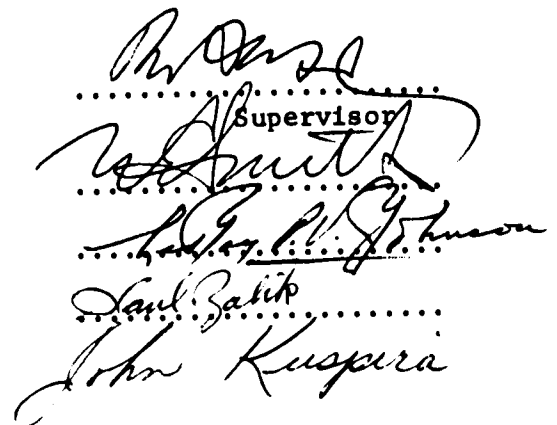 Supervisor
Smith
L. P. V. Johnson
Saul Zalik
John Kuspira